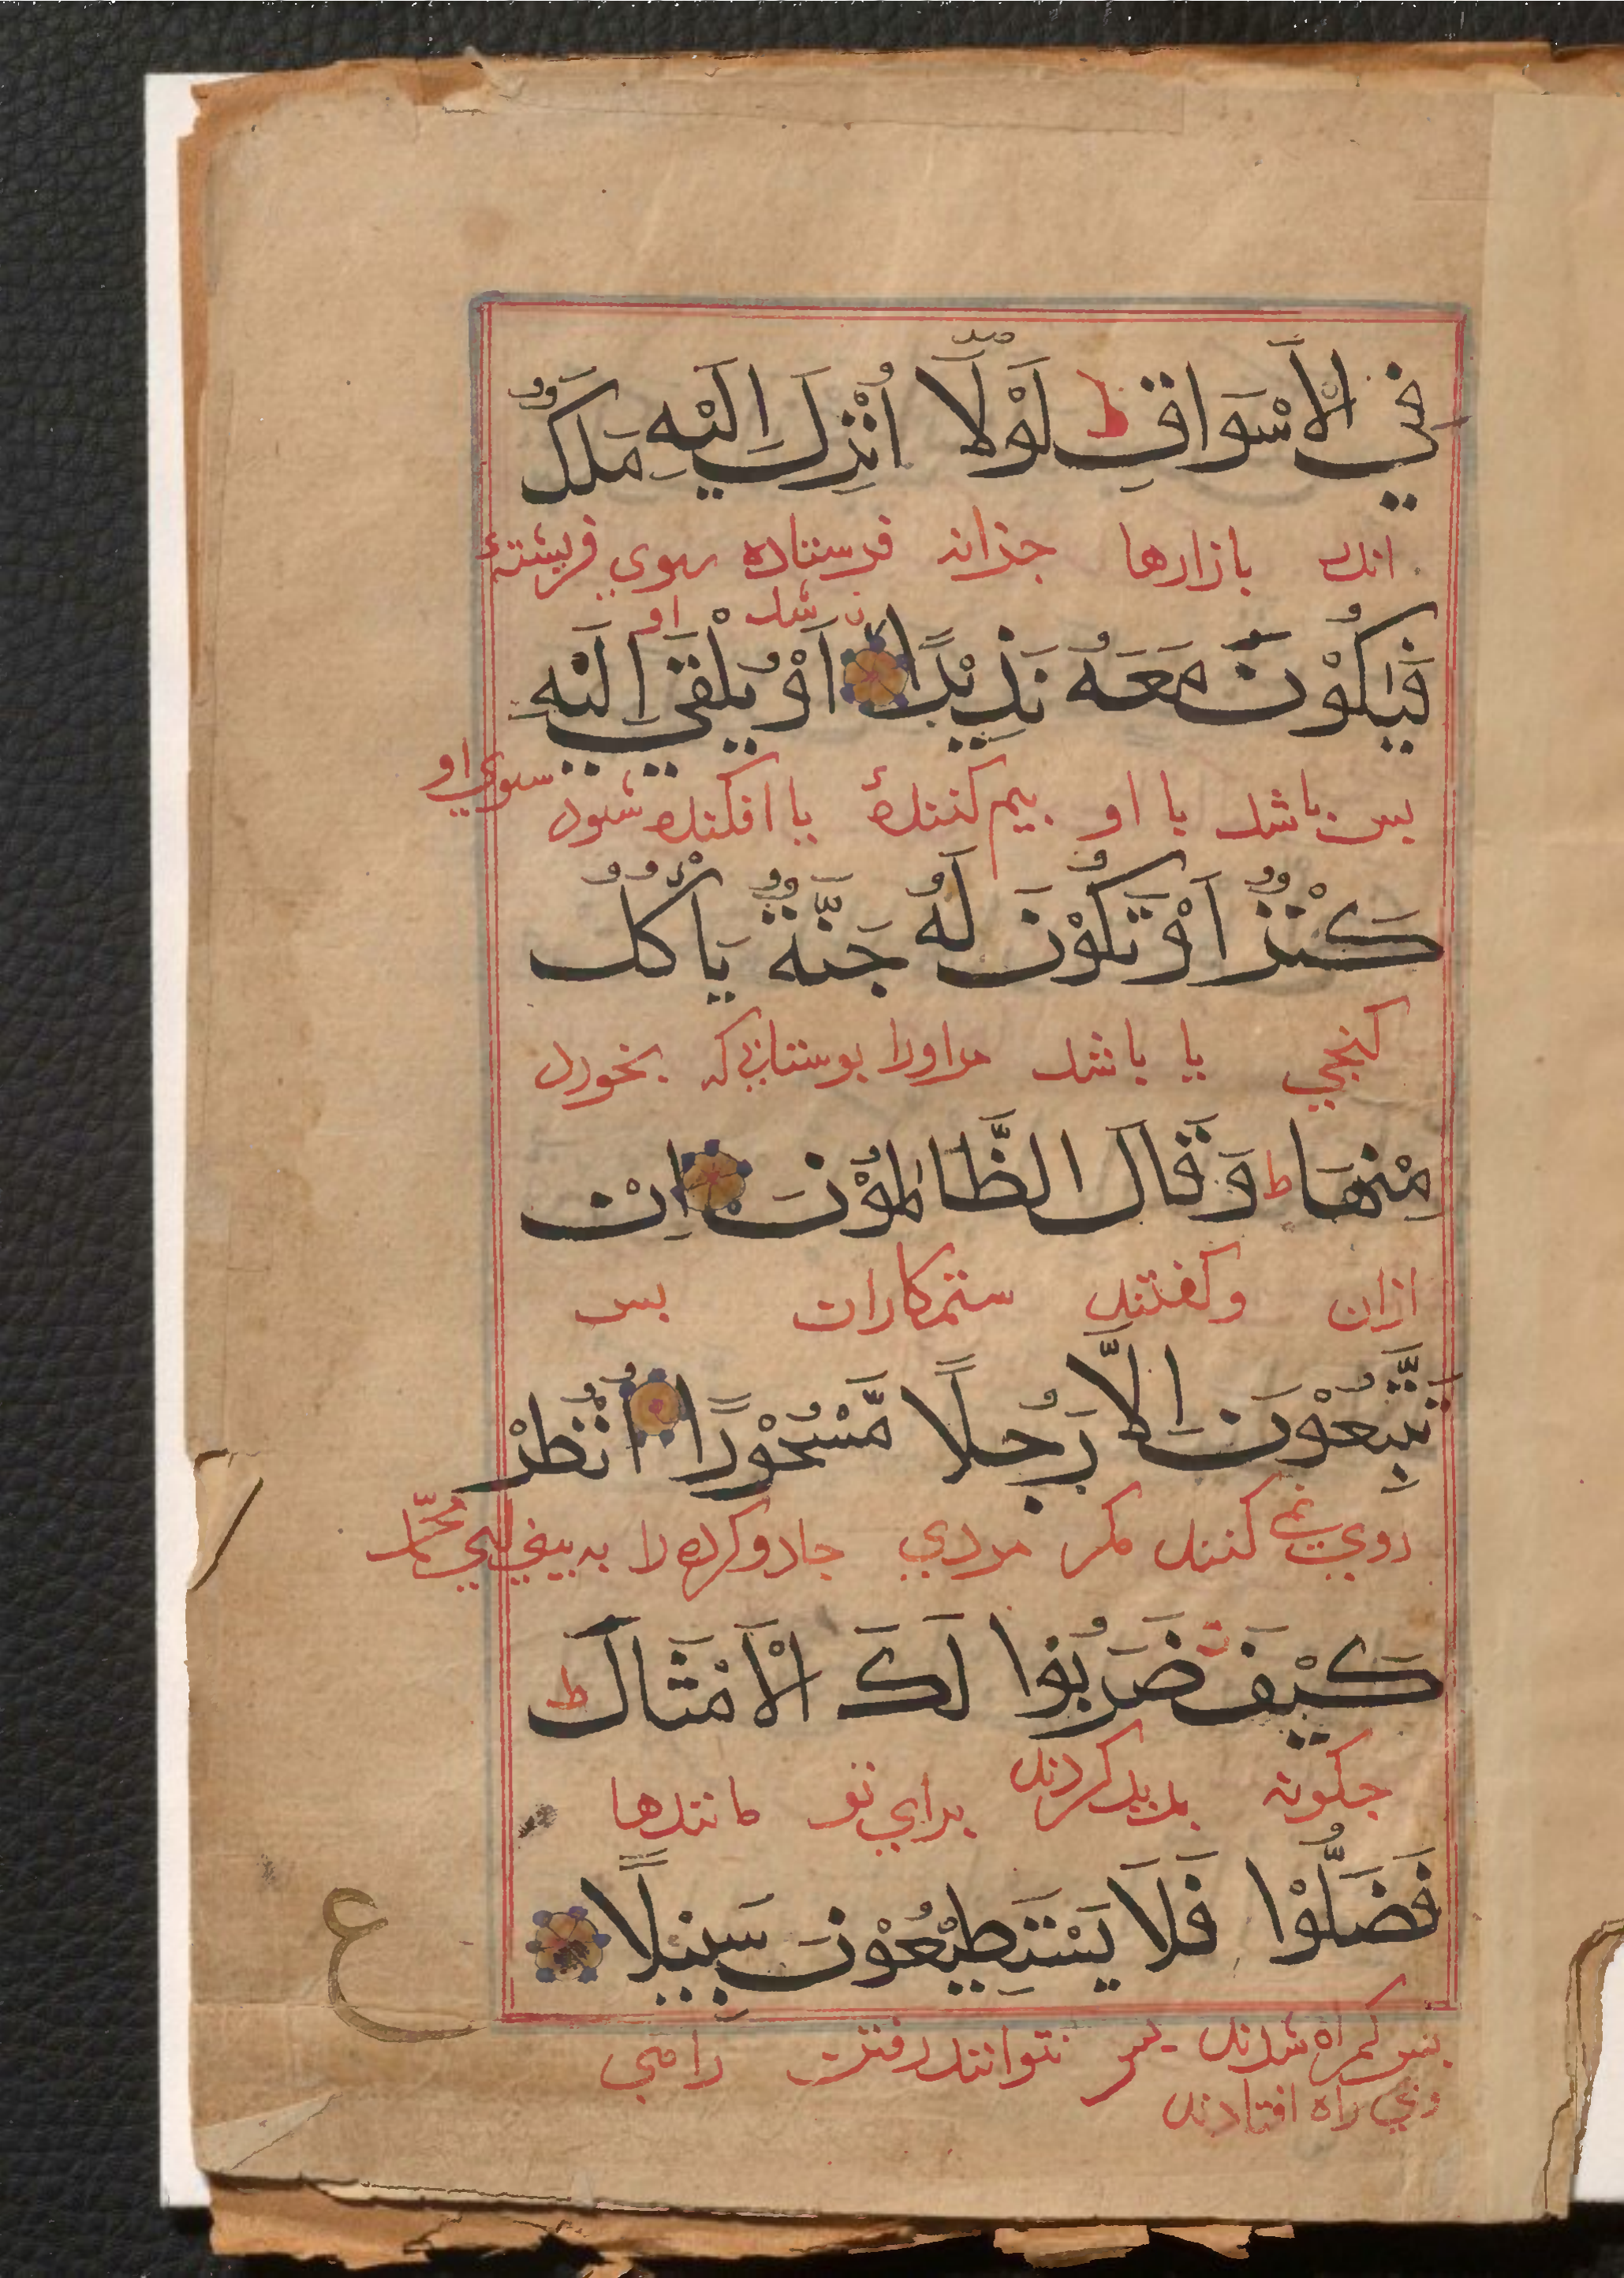 فِي الْاَسْوَاقِ ط لَوْلَآ اُنْزِلَ اِلَيْهِ مَلَكٌ
بازارها چرانه فرستاده سوي فريشتهٔ
نه شد او
فَيَكُوْنَ مَعَهُ نَذِيْرًا اَوْ يُلْقٰي اِلَيْهِ
بس باشد با او بيم كنندهٔ يا افكنده شود سوي او
كَنْزٌ اَوْ تَكُوْنُ لَهُ جَنَّةٌ يَأْكُلُ
كنجي يا باشد مراورا بوستاني كه بخورد
مِنْهَا ط وَقَالَ الظَّالِمُوْنَ اِنْ
ازان وكفتند ستمكاران
تَّتَّبِعُوْنَ اِلَّا رَجُلًا مَّسْحُوْرًا اُنْظُرْ
كنند مكر مردي جادو كرده را به بين اي محمّد
كَيْفَ ضَرَبُوْا لَكَ الْاَمْثَالَ ط
جكونه كردند براي تو مانندها
فَضَلُّوْا فَلَا يَسْتَطِيْعُوْنَ سَبِيْلًا
ع
بس كمراه شدند بس نتوانند رفتن راهي
راه افتادند